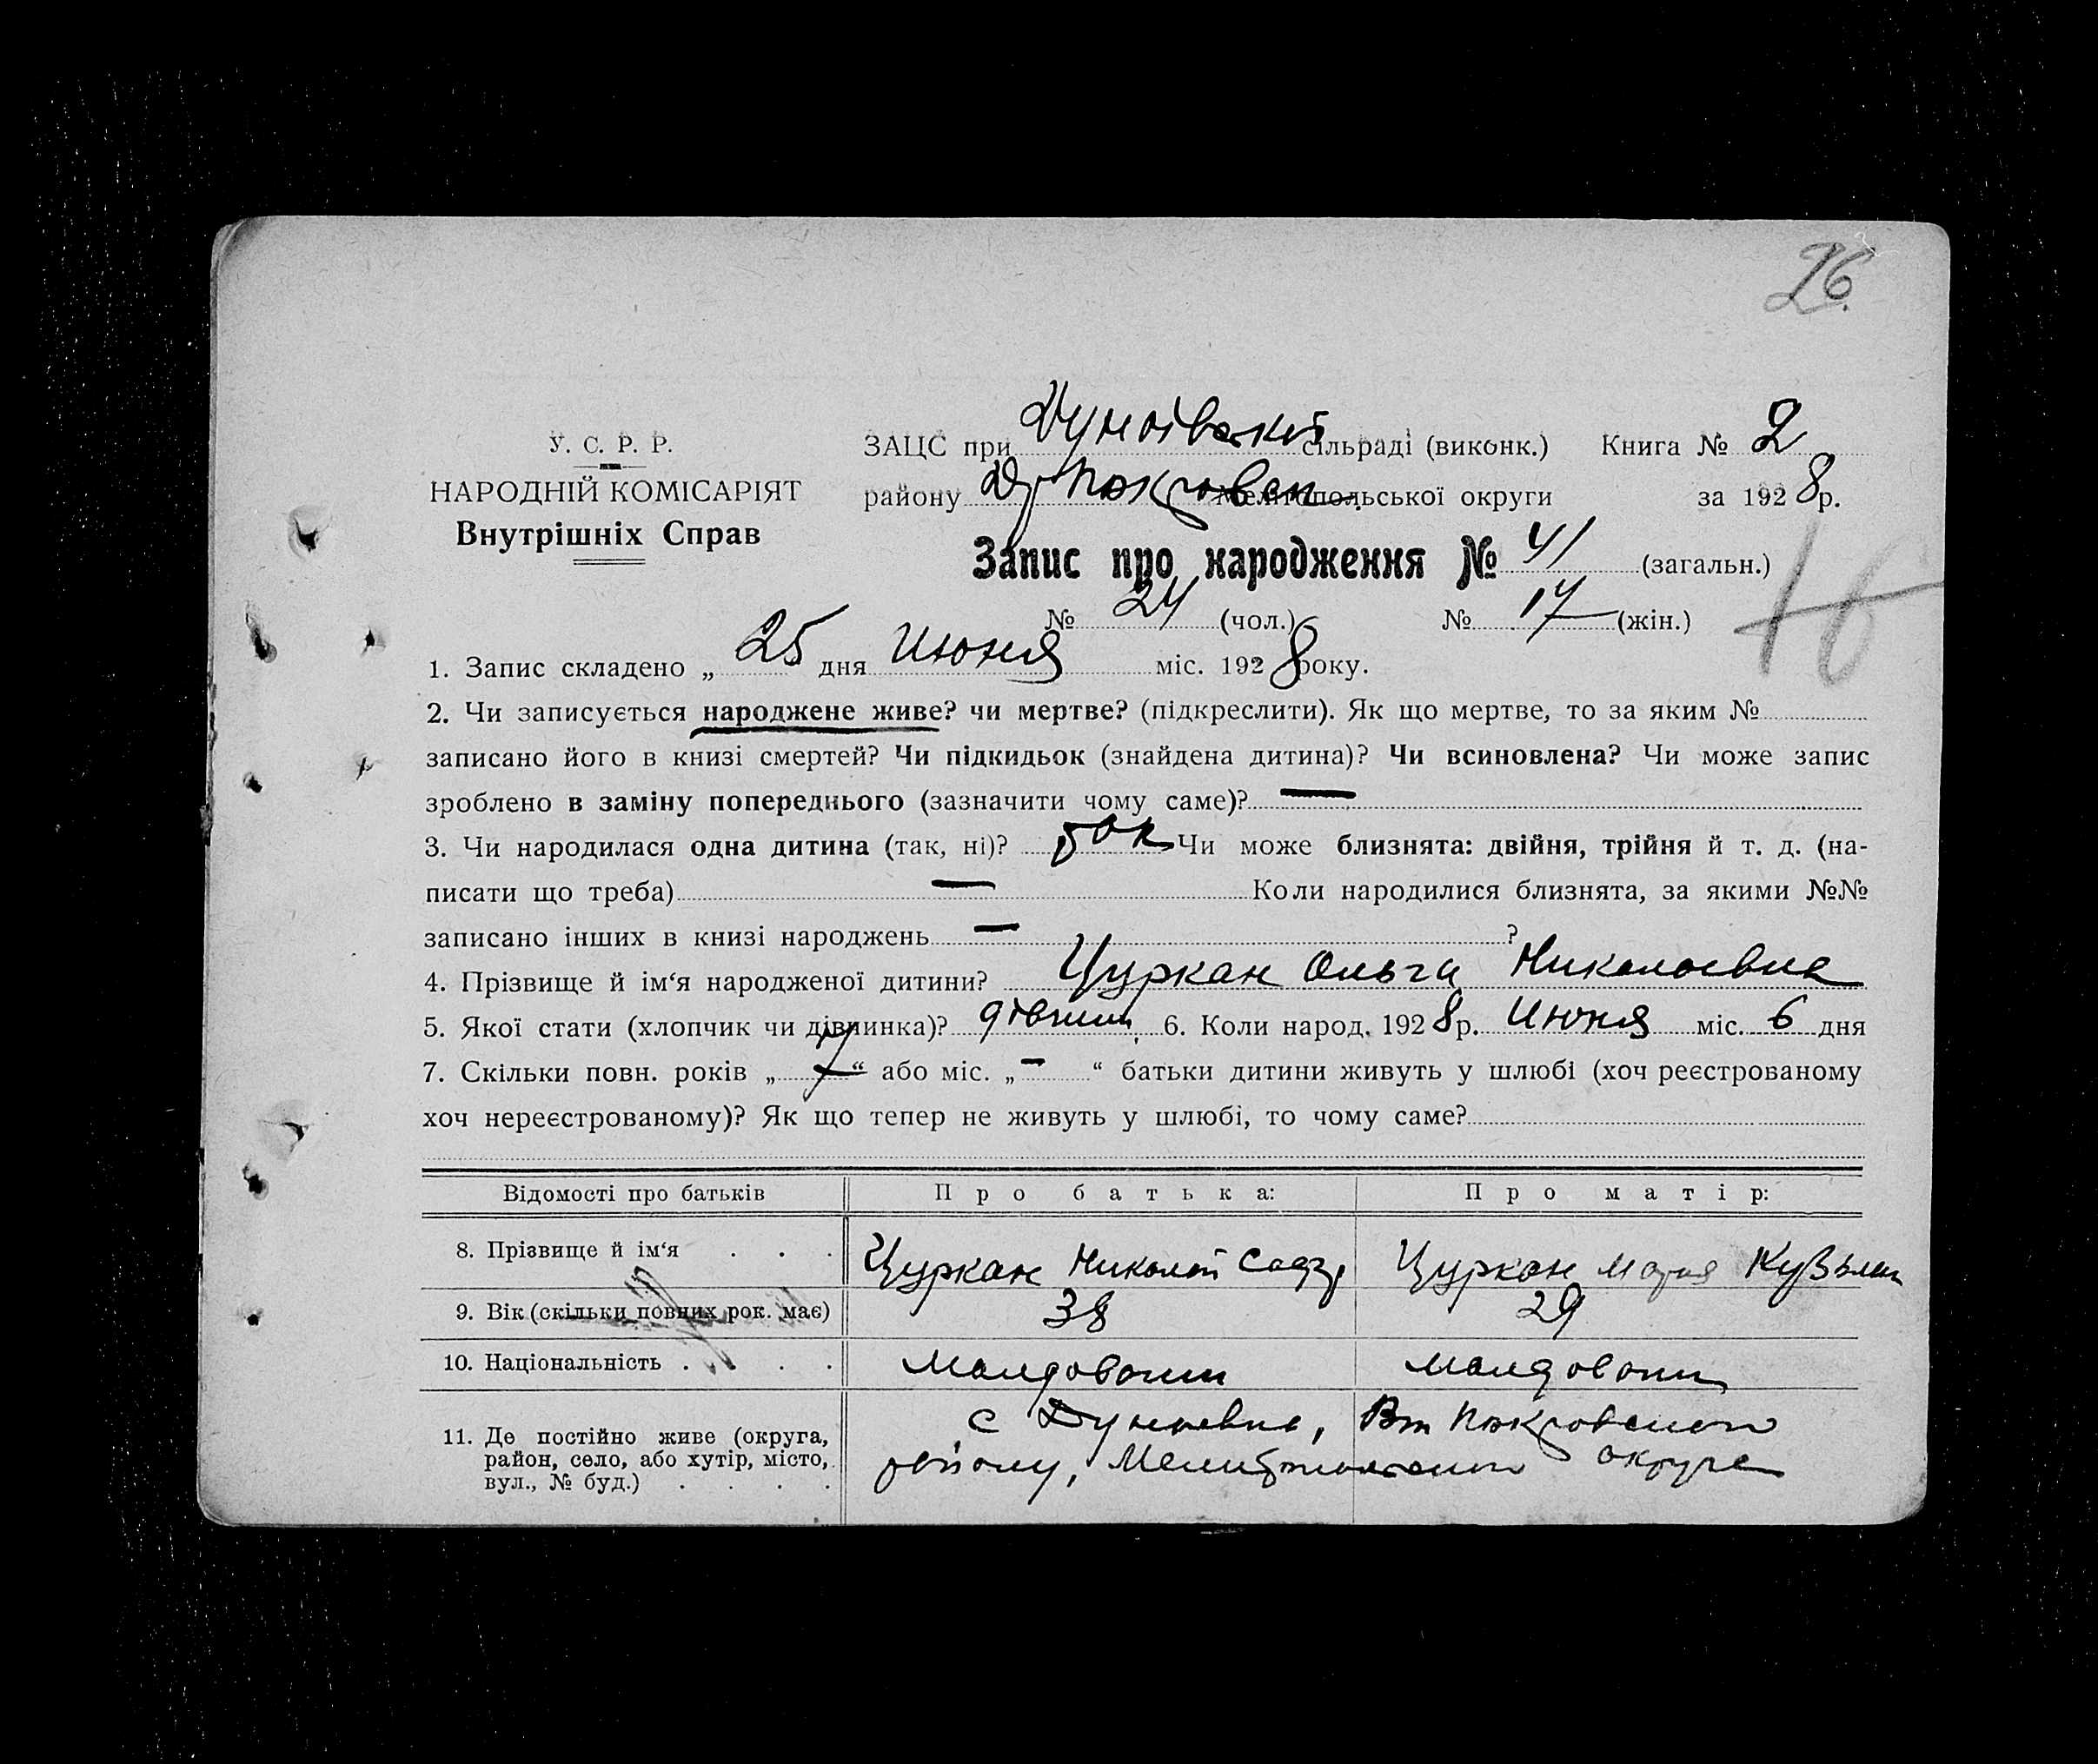 26.
У. С. Р. Р.
НАРОДНІЙ КОМІСАРІЯТ
Внутрішніх Справ
ЗАЦС при Дунаївській сільраді (виконк.) Книга № 2
району Мелітопольської округи за 1928 р.
Запис про народження № 41 (загальн.)
№ 24 (чол.) № 17 (жін.)
16
1. Запис складено „ 25 дня Июня міс. 1928 року.
2. Чи записується народжене живе? чи мертве? (підкреслити). Як що мертве, то за яким №
записано його в книзі смертей? Чи підкидьок (знайдена дитина)? Чи всиновлена? Чи може запис
зроблено в заміну попереднього (зазначити чому саме)? —
3. Чи народилася одна дитина (так, ні)? так Чи може близнята: двійня, трійня й т. д. (на-
писати що треба) — Коли народилися близнята, за якими №№
записано інших в книзі народжень — ?
4. Прізвище й ім‘я народженої дитини? Цуркан Ольга Николаевна
5. Якої стати (хлопчик чи дівчинка)? 6. Коли народ. 1928 р. Июня міс. 6 дня
7. Скільки повн. років „ 7 “ або міс. „ — “ батьки дитини живуть у шлюбі (хоч реєстрованому
хоч нереєстрованому)? Як що тепер не живуть у шлюбі, то чому саме?
Відомості про батьків Про батька: Про матір:
8. Прізвище й ім‘я . . . Цуркан Николай Цуркан Мария Кузьмин
9. Вік (скільки повних рок. має) 38 29
10. Національність . . . . Молдовани Молдовани
11. Де постійно живе (округа, с Дунаевка, Покровского
район, село, або хутір, місто, району, Мелитопольского округа
вул., № буд.) . . . .